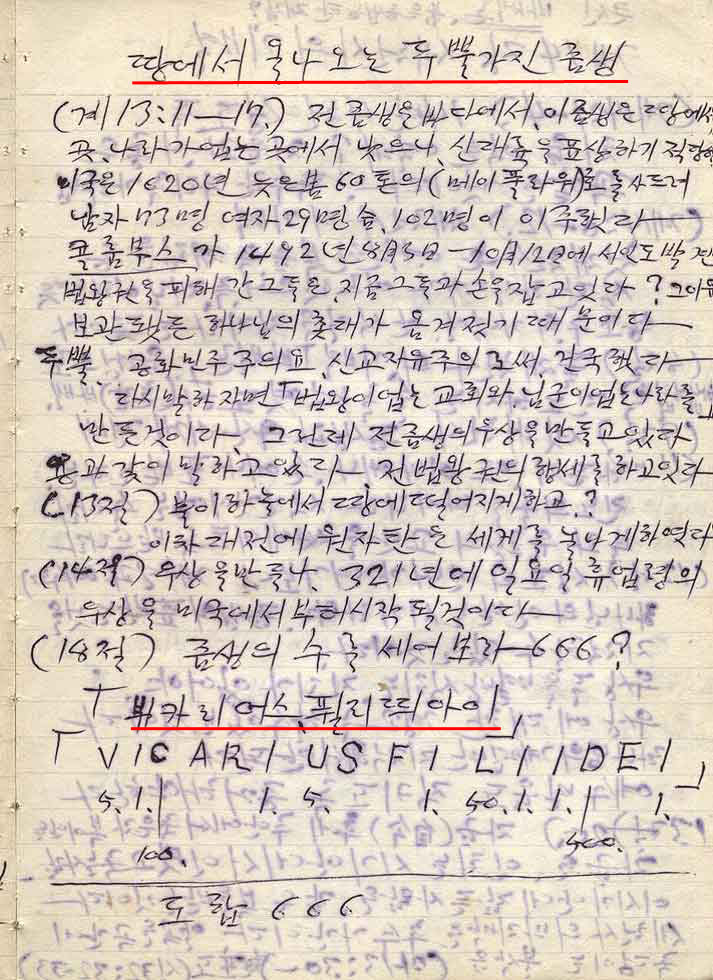 땅에서 올나오는 두 뿔가진 즘생
(계 13:11—17.) 전즘생은 바다에서, 이즘생은 땅에서
곳, 나라가 업는 곳에서 낫으니, 신대륙을 표상하기 적당함
미국은 1620년 늦은봄 60톤의 (메이풀라워)로
남자 73명 여자 29명 合, 102명이 이주햇다—
콜롬부스가 1492년 8月3日—10月12日에 서인도 박견
법왕권을 피해 간 그들은, 지금 그들과 손을 잡고잇다? 그이유
보관됏든 하나님의 촛대가 옴겨젓기 때문이다—
두뿔, 공화민주주의요, 신교자유주의로써, 건국햇다—
다시말하자면「법왕이업는 교회와, 님군이업는나라를」
만든것이다, 그런데 전즘생의 우상을 만들고있다
용과 같이 말하고 있다—전법왕권의 행세를 하고잇다
(13절) 불이 하늘에서 땅에 떨어지게하고?
이차대전에 원자탄은 세게를 놀나게하엿다
(14절) 우상을 만들나, 321년에 일요일 휴업령의
우상을 미국에서부터 시작될것이다—
(18절) 즘생의 수를 세어보라—666?
「뷔카리어스, 필리띄아이」
「VICARIUS FILII DEI」
5. 1. 1. 5. 1. 50. 1. 1. 1.
100. 500.
도합 666